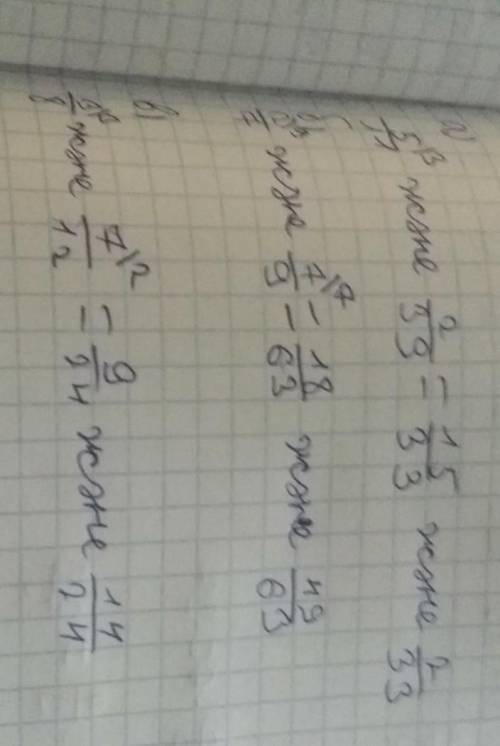 а) 5/11 |3 және 2/33 = 15/33 және 2/33
2/7 |9 және 7/9 |7 = 18/63 және 49/63
в) 3/8 |3 және 7/12 |2 = 9/24 және 14/24